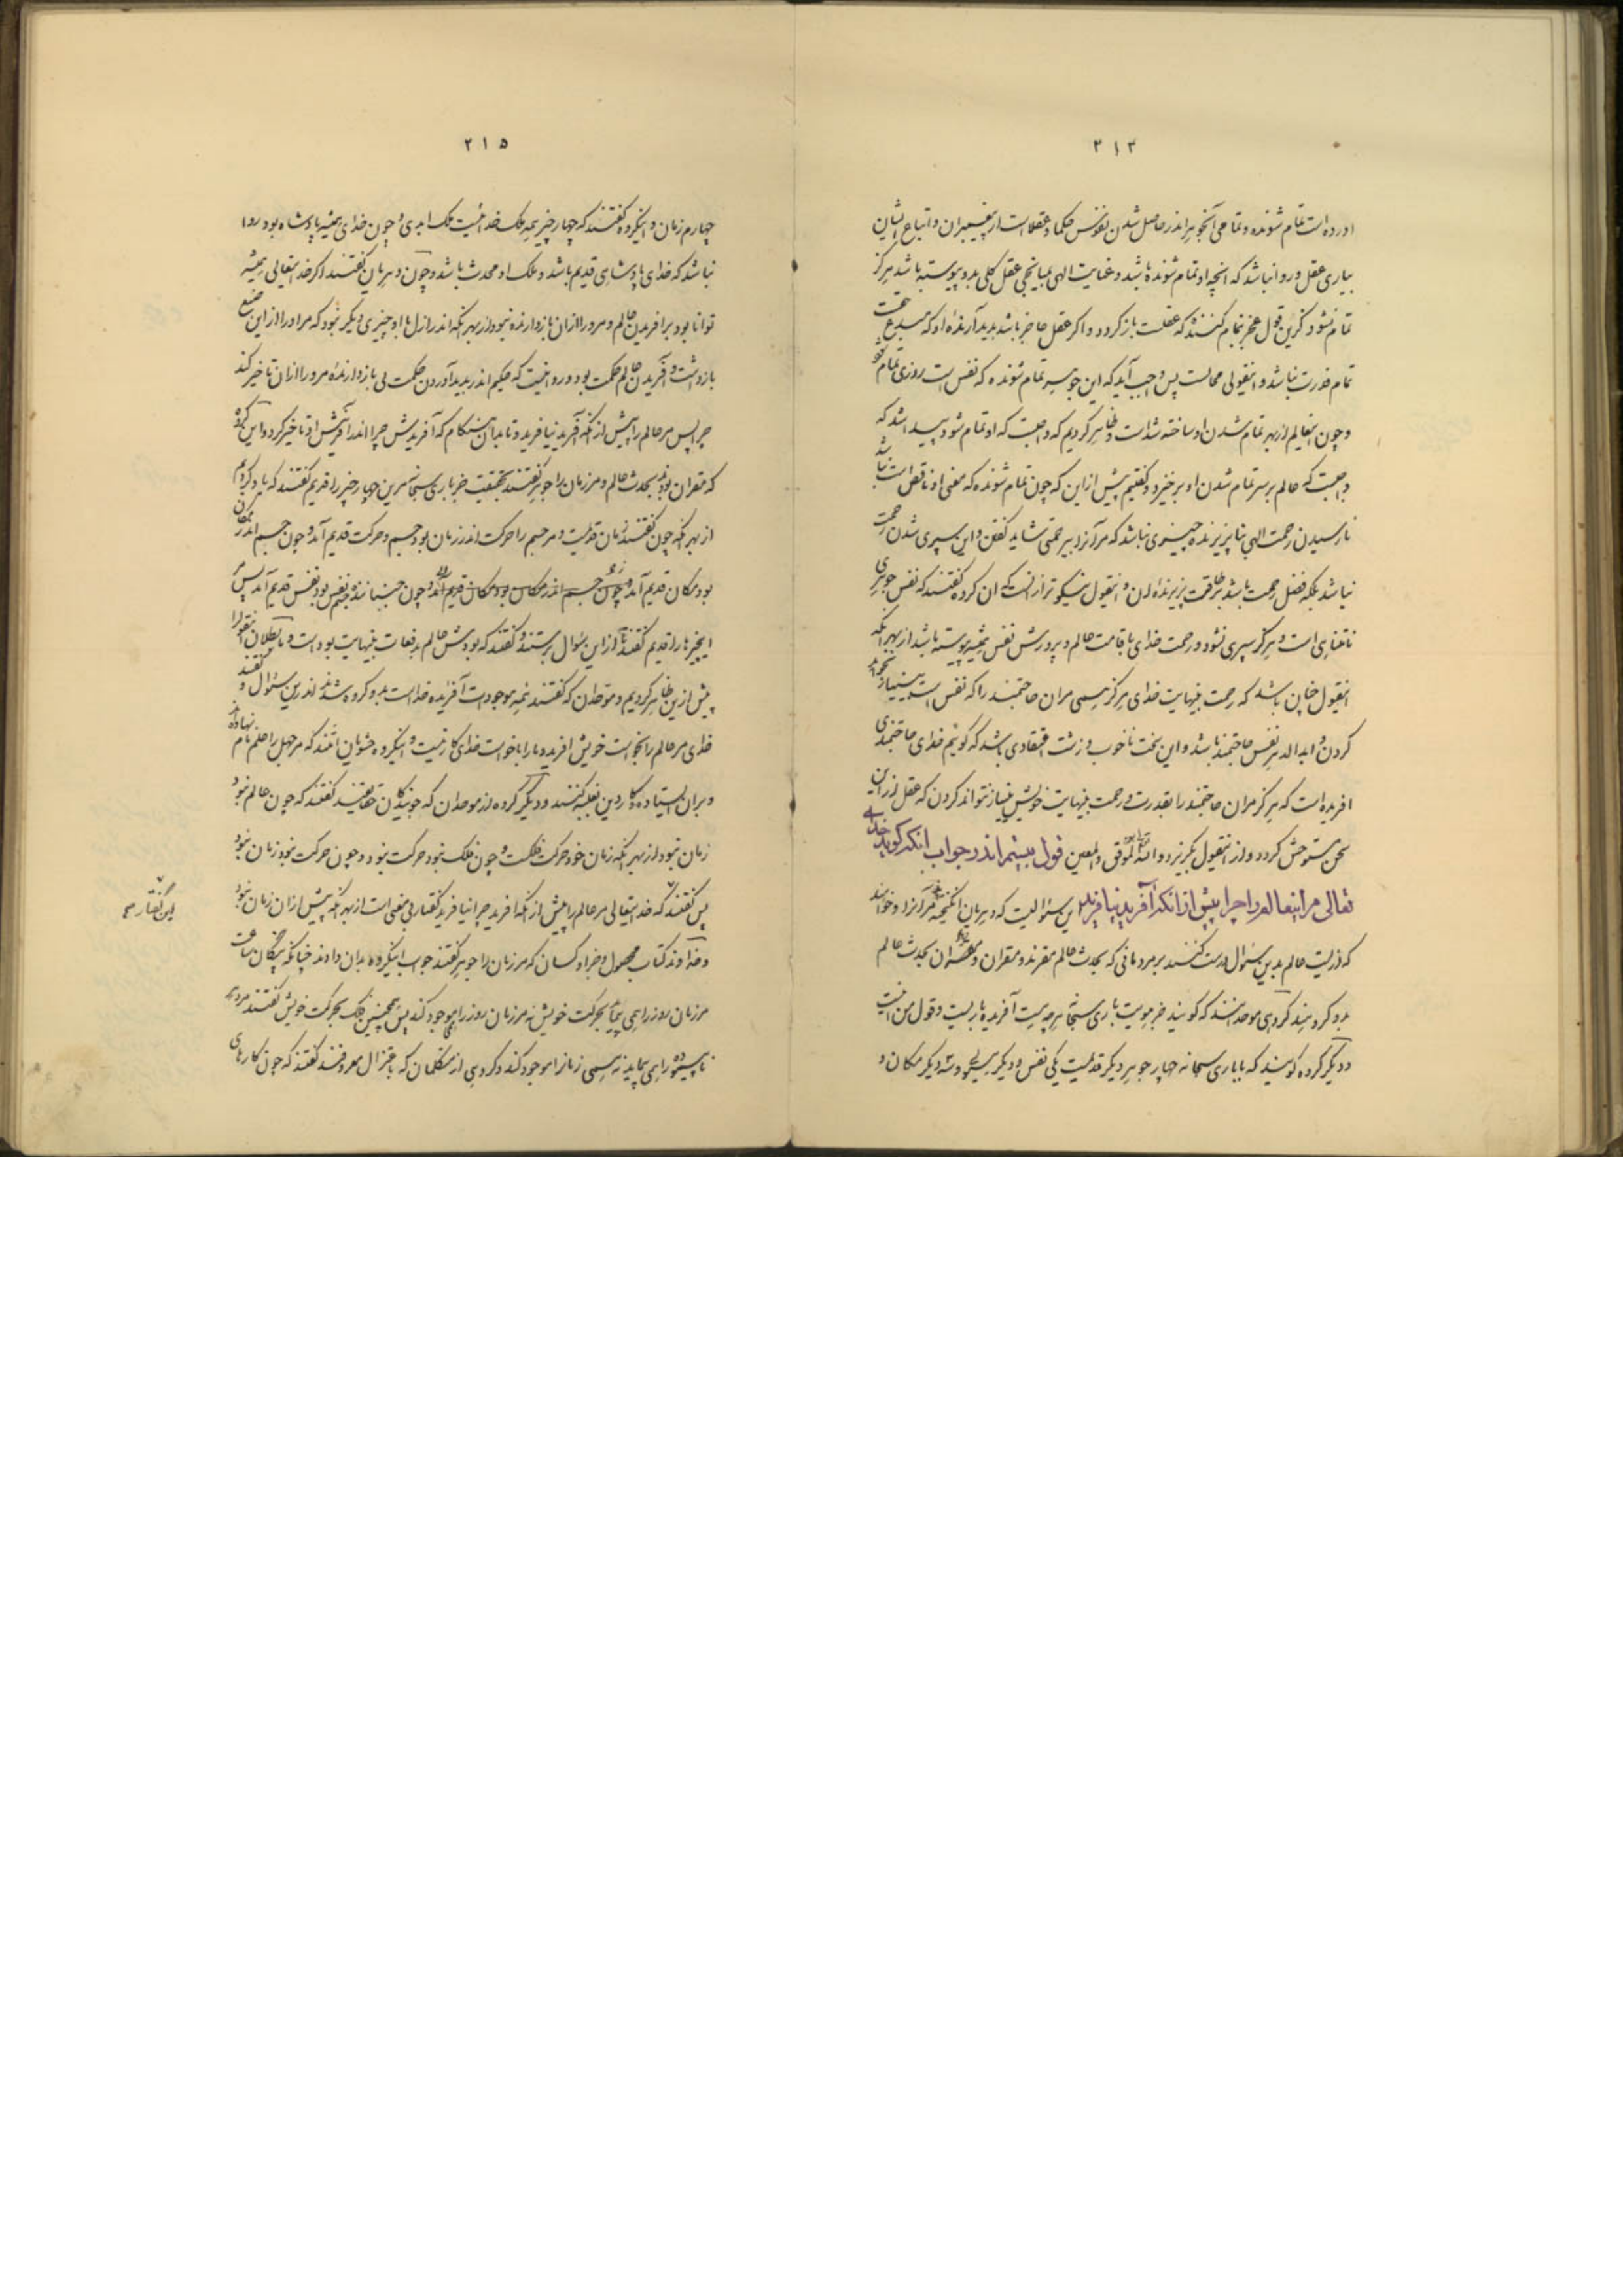 ۲۱۴
اورده است تمام شونده و تمامی آنجوهر اندر حاصل شدن نفوس حکما و عقلاست از پیغمبران و اتباع ایشان
بیاری عقل و روا نباشد که آنچه او تمام شونده باشد و عنایت الهی بمیانجی عقل کلی بدو پیوسته باشد هرگز
تمام نشود کزین قول عجز تمام کننده که عقلست باز گردد و اگر عقل عاجز باشد پدید آرنده او که مبدع حقست
تمام قدرت نباشد و اینقولی محالست پس واجب آید که این جوهر تمام شونده که نفس است روزی تمام شود
و چون اینعالم از بهر تمام شدن او ساخته شده است و ظاهر کردیم که واجبست که او تمام شود پیدا شد که
واجبست که عالم برسر تمام شدن او برخیزد و گفتیم پیش از این که چون تمام شونده که معنی او ناقص است نباشد
نارسیدن رحمت الهی بناپذیرنده چیزی نباشد که مر آنرا بیرحمتی شاید گفتن و این سپری شدن رحمت
نباشد بلکه فضل رحمت باشد بر طاقت پذیرنده آن و اینقول نیکوتر از آنست که آن گروه گفتند که نفس جوهری
نامتناهی است و هرگز سپری نشود و رحمت خدای باقامت عالم و پرورش نفس همیشه پیوسته باشد از بهر آنکه
اینقول چنان باشد که رحمت بینهایت خدای هرگز همی مر آن حاجتمند را که نفس است بی نیاز نخواهد
کردن و ابدا الدهر نفس حاجتمند باشد و این سخت ناخوب و زشت اعتقادی باشد که گوئیم خدای حاجتمندی
آفریده است که هرگز مر آن حاجتمند را بقدرت و رحمت بینهایت خویش بینیاز نتواند کردن که عقل از این
سخن مستوحش گردد و از اینقول بگریزد و الله الموفق و المعین قول بیستم اندر جواب آنکه گوید خدای
تعالی مر اینعالم را چرا پیش از آنکه آفرید نیافرید این سؤالیست که دهریان انگیخته اند مر آنرا و خواهند
که ازلیت عالم بدین سؤال درست کنند بر مردمانی که بحدث عالم مقرند و مقران بحدث عالم
بدو گروهند گروهی موحدانند که گویند جز هویت باری سبحانه هرچه هست آفریده باریست و قول من اینست
و دیگر گروه گویند که با باری سبحانه چهار جوهر دیگر قدیمست یکی نفس و دیگر هیولی و سه دیگر مکان و
۲۱۵
چهارم زمان و اینگروه گفتند که چهار چیز همه ملک خدائیست ملک ابدی و چون خدای همیشه پادشاه بود روا
نباشد که خدای پادشاهی قدیم باشد و ملک او محدث باشد و چون دهریان گفتند اگر خدایتعالی همیشه
توانا بود بر آفریدن عالم و مر ورا از آن بازدارنده نبود از بهر آنکه اندر ازل با او چیزی دیگر نبود که مر او را از این صنع
بازداشت و آفریدن عالم حکمت بود و روا نیست که حکیم اندر پدید آوردن حکمت بی بازدارنده مر ورا از آن تاخیر کند
چرا پس مر عالم را پیش از آنکه آفرید نیافرید و تا بدان هنگام که آفریدش چرا اندر آفرینش او تاخیر کرد و این گروه
که مقران بودند بحدث عالم و مر زمان را جوهر گفتند بحقیقت جز باری سبحانه مر این چهار چیز را قدیم گفتند که یاد کردیم
از بهر آنکه چون گفتند زمان قدیمست و مر جسم را حرکت اندر زمان بود جسم و حرکت قدیم آمد و چون جسم اندر مکان
بود مکان قدیم آمد و چون جسم اندر مکان بود مکان قدیم آمد و چون جنباننده جسم نفس بود نفس قدیم آمد پس مر
اینچیزها را قدیم گفتند تا از این سؤال برستند و گفتند که بودش عالم بدفعات بینهایت بوده است و ما بطلان اینقول را
پیش از این ظاهر کردیم و موحدان که گفتند همه موجودات آفریده خداست بدو گروه شدند اندر این سؤال و گفتند
خدای مر عالم را بخواست خویش آفرید و ما را با خواست خدای کار نیست و اینگروه حشویان امتند که مر جهل را علم نام نهاده اند
و بر آن ایستاده و کار دین بغلبه کنند و دیگر گروه از موحدان که جویندگان حقایقند گفتند که چون عالم نبود
زمان نبود از بهر آنکه زمان خود حرکت فلکست و چون فلک نبود حرکت نبود و چون حرکت نبود زمان نبود
پس گفتند که خدایتعالی مر عالم را پیش از آنکه آفرید چرا نیافرید گفتاری بیمعنی است از بهر آنکه پیش از آن زمان نبود
این گفتار
و خداوند کتاب محصول و جز او کسان که مر زمان را جوهر گفتند جواب اینگروه بدان دادند چنانکه پنگان ساعت
مر زمان روز را همی پیماید بحرکت خویش نه مر زمان روز را همی موجود کند پس همچنین فلک بحرکت خویش گفتند مر دهر
ناپیموده را همی پیماید نه همی زمانرا موجود کند و گروهی از متکلمان که باعتزال معروفند گفتند که چون کارهای